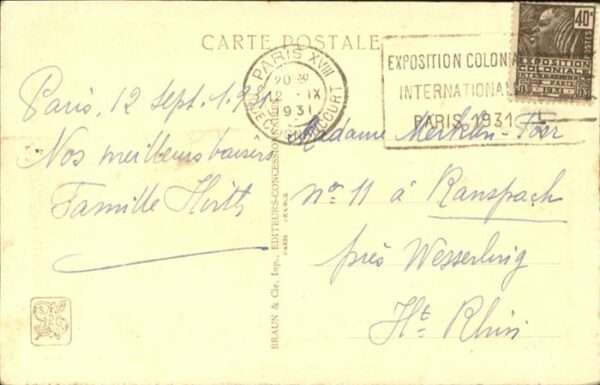 CARTE POSTALE
Paris, 12 Sept. 1.931
Nos meilleurs baisers
Famille Hirth
PARIS XVIII
20 30
12 - IX
1931
EXPOSITION COLONIALE
INTERNATIONALE
PARIS 1931
40c
POSTES
EXPOSITION
COLONIALE
INTERNATIONALE
PARIS
1931
BRAUN & Cie, Imp., EDITEURS-CONCESSIONNAIRES
Madame Merklen-Foer
no. 11 à Ranspach
près Wesserling
Ht. Rhin